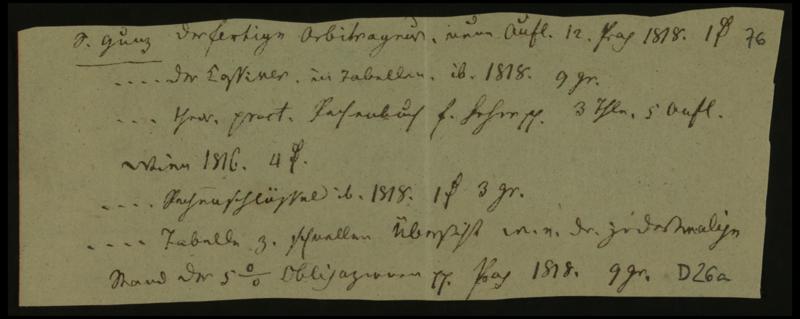 S. Gunz der fertige Arbitrageur, neue Aufl. 12. Prag 1818. 1 ₰ 76
.... der in Tabellen. ib. 1818. 9 gr.
... theor. pract. Rechenbuch f. 3 Thle. 5 Aufl.
Wien 1816. 4 ₰.
.... Rechenschlüssel ib. 1818. 1 ₰ 3 gr.
.... Tabelle z. schnellen Übersicht d. jedesmalige
Stand der 5 % Obligazionen pp. Prag 1818. 9 gr. D26a